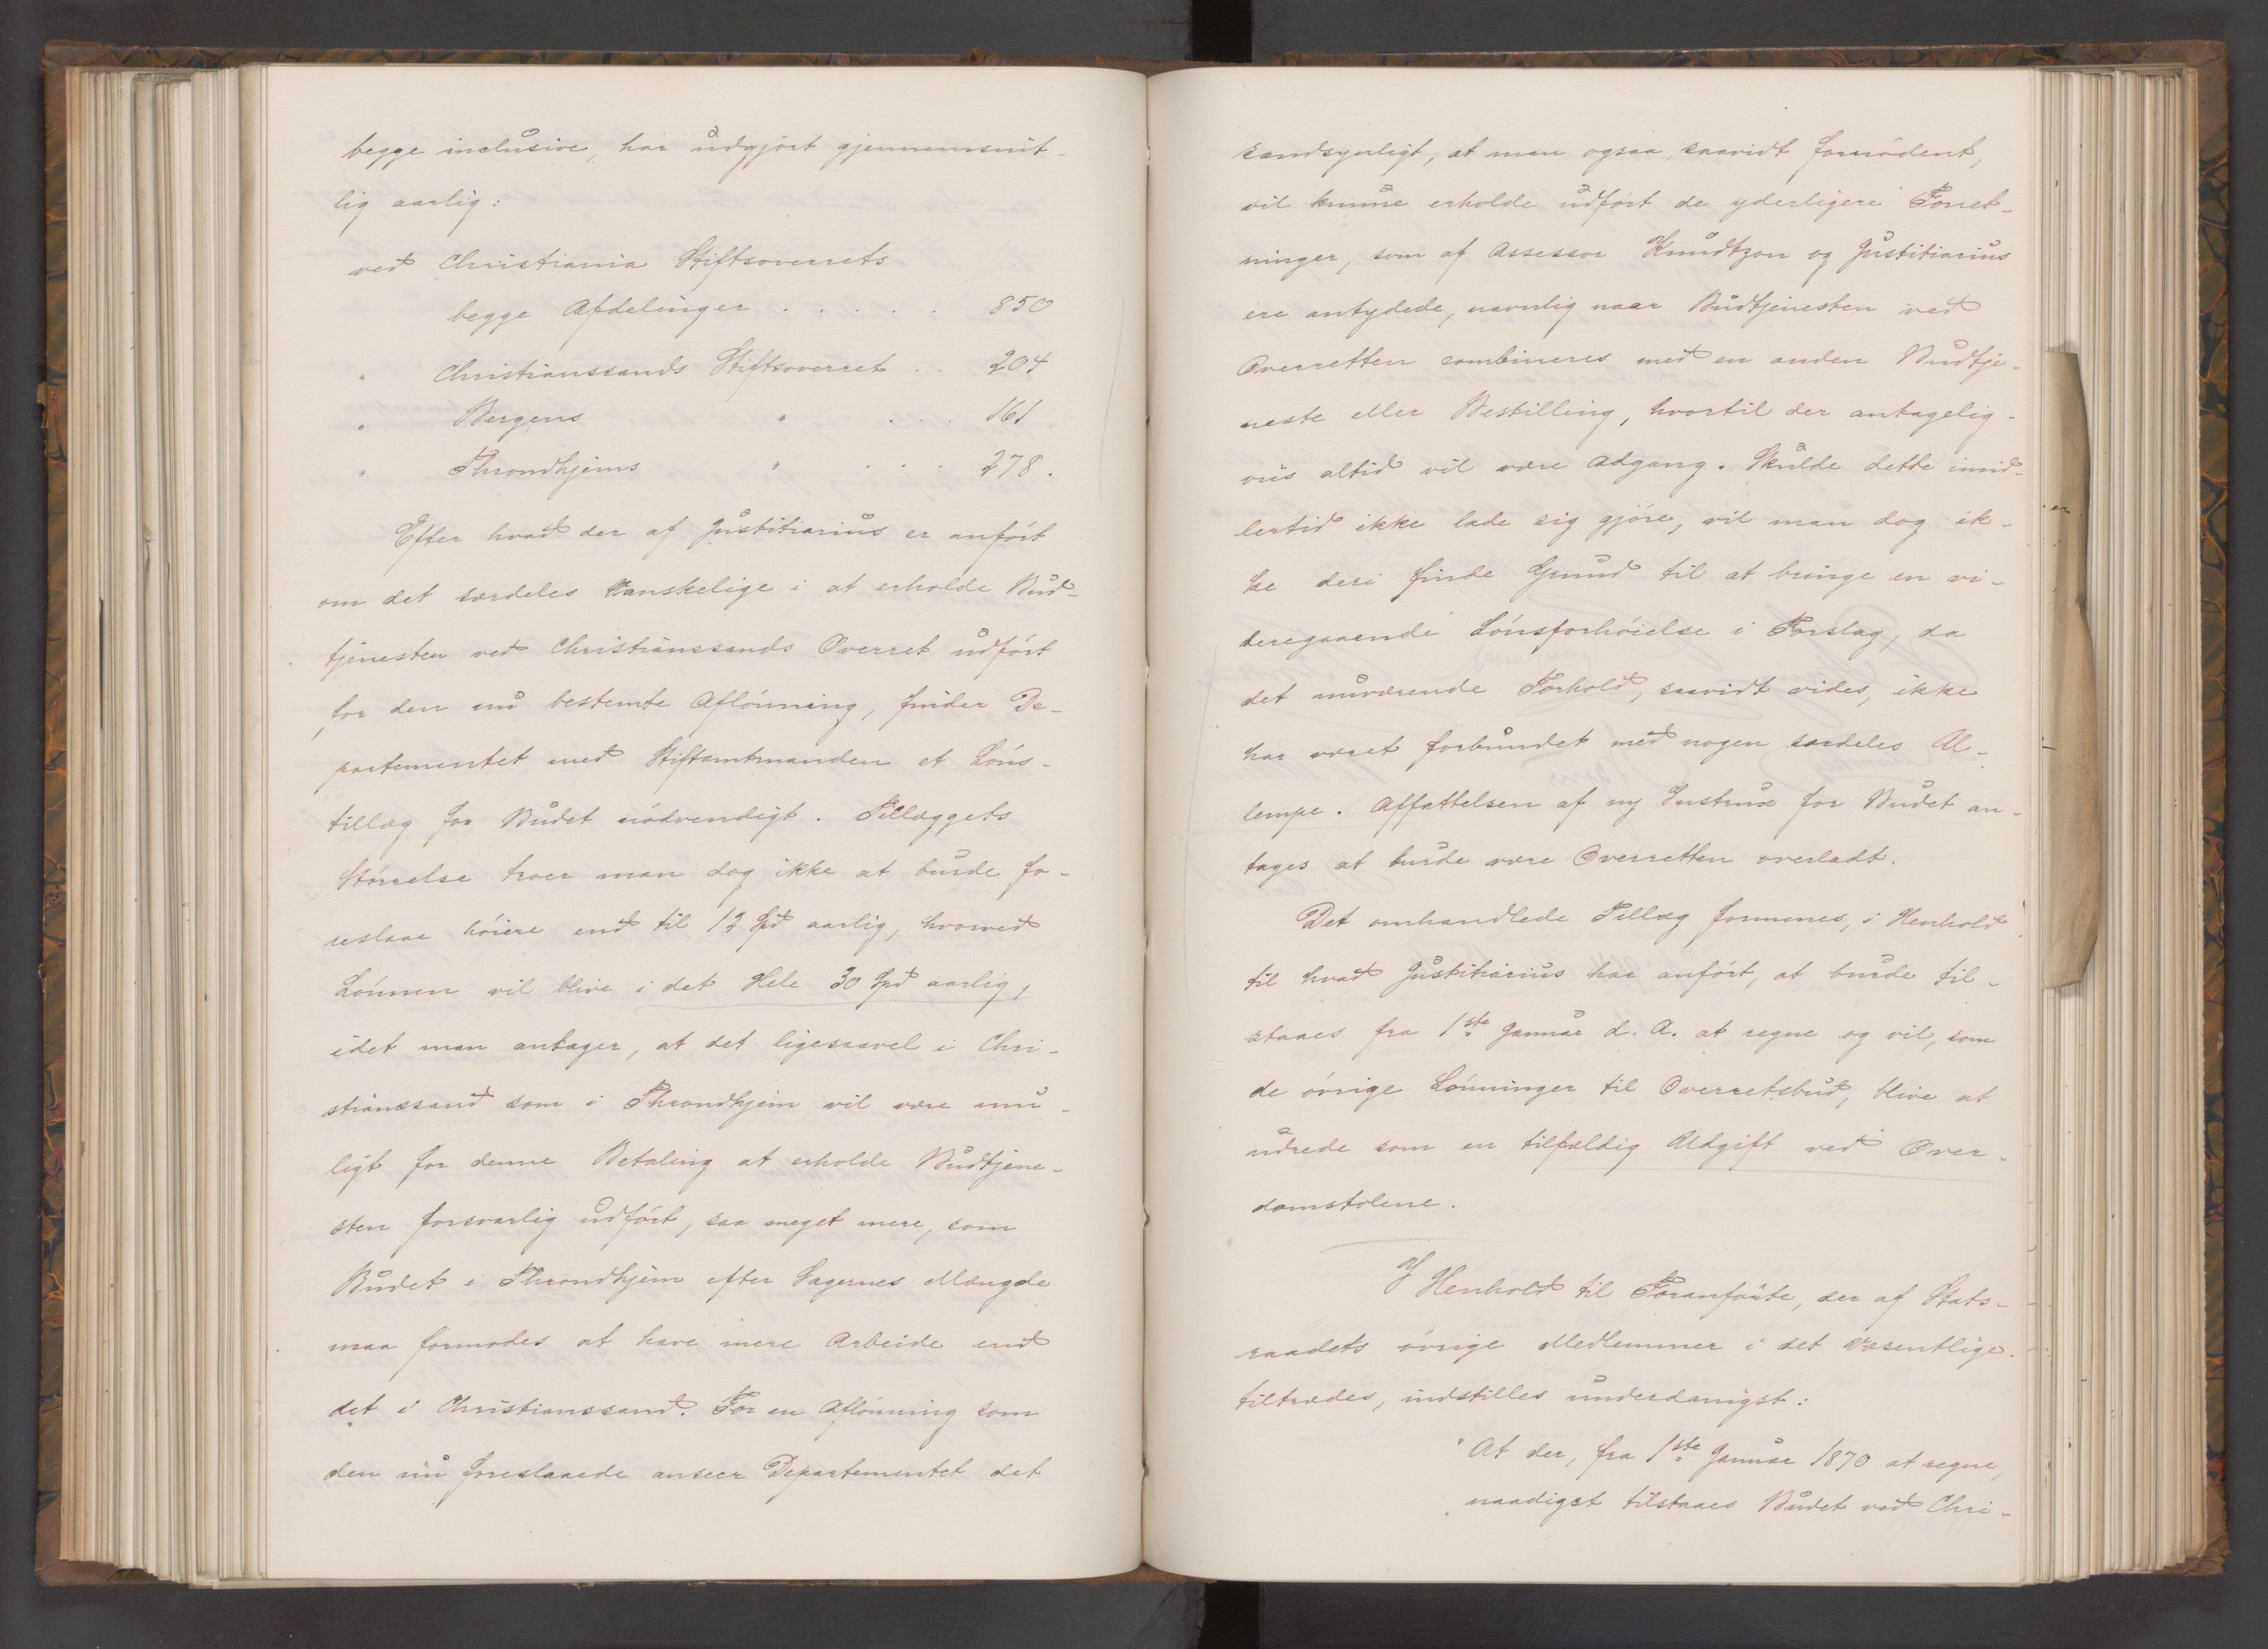 begge inclusive, har udgjort gjennemsnit-
lig aarlig:
ved Christiania Stiftsoverrets
begge Afdelinger . . . . . 850
" Christianssands Stiftsoverret . . 204
" Bergens " . . . 161
" Throndhjems " . . . 278.
Efter hvad der af Justitiarius er anført
om det særdeles Vanskelige i at erholde Bud-
tjenesten ved Christianssands Overret udført
for den nu bestemte Aflønning, finder De-
partementet med Stiftamtmanden et Løns-
tillæg for Budet nødvendigt. Tillæggets
Størrelse troer man dog ikke at burde fo-
reslaae høiere end til 12 Spd aarlig, hvorved
Lønnen vil blive i det Hele 30 Spd aarlig,
idet man antager, at det ligesaavel i Chri-
stianssand som i Throndhjem vil være mu-
ligt for denne Betaling at erholde Budtjene-
sten forsvarlig udført, saa meget mere, som
Budet i Throndhjem efter Sagernes Mængde
maa formodes at have mere Arbeide end
det i Christianssand. For en Aflønning som
den nu foreslaaede anseer Departementet det
sandsynligt, at man ogsaa, saavidt fornødent,
vil kunne erholde udført de yderligere Forret-
ninger, som af Assessor Knudtzon og Justitiarius
ere antydede, navnlig naar Budtjenesten ved
Overretten combineres med en anden Budtje-
neste eller Bestilling, hvortil der antagelig-
viis altid vil være Adgang. Skulde dette imid-
lertid ikke lade sig gjøre, vil man dog ik-
ke deri finde Grund til at bringe en vi-
deregaaende Lønsforhøielse i Forslag, da
det nuværende Forhold, saavidt vides, ikke
har været forbundet med nogen særdeles Ul-
lempe. Affattelsen af ny Instrux for Budet an-
tages at burde være Overretten overladt.
Det omhandlede Tillæg formenes, i Henhold
til hvad Justitiarius har anført, at burde til-
staaes fra 1ste Januar d. A. at regne og vil, som
de øvrige Lønninger til Overretsbud, blive at
udrede som en tilfældig Udgift ved Over-
domstolene.
I Henhold til Foranførte, der af Stats-
raadets øvrige Medlemmer i det Væsentlige
tiltrædes, indstilles underdanigst:
"At der, fra 1ste Januar 1870 at regne,
naadigst tilstaaes Budet ved Chri-